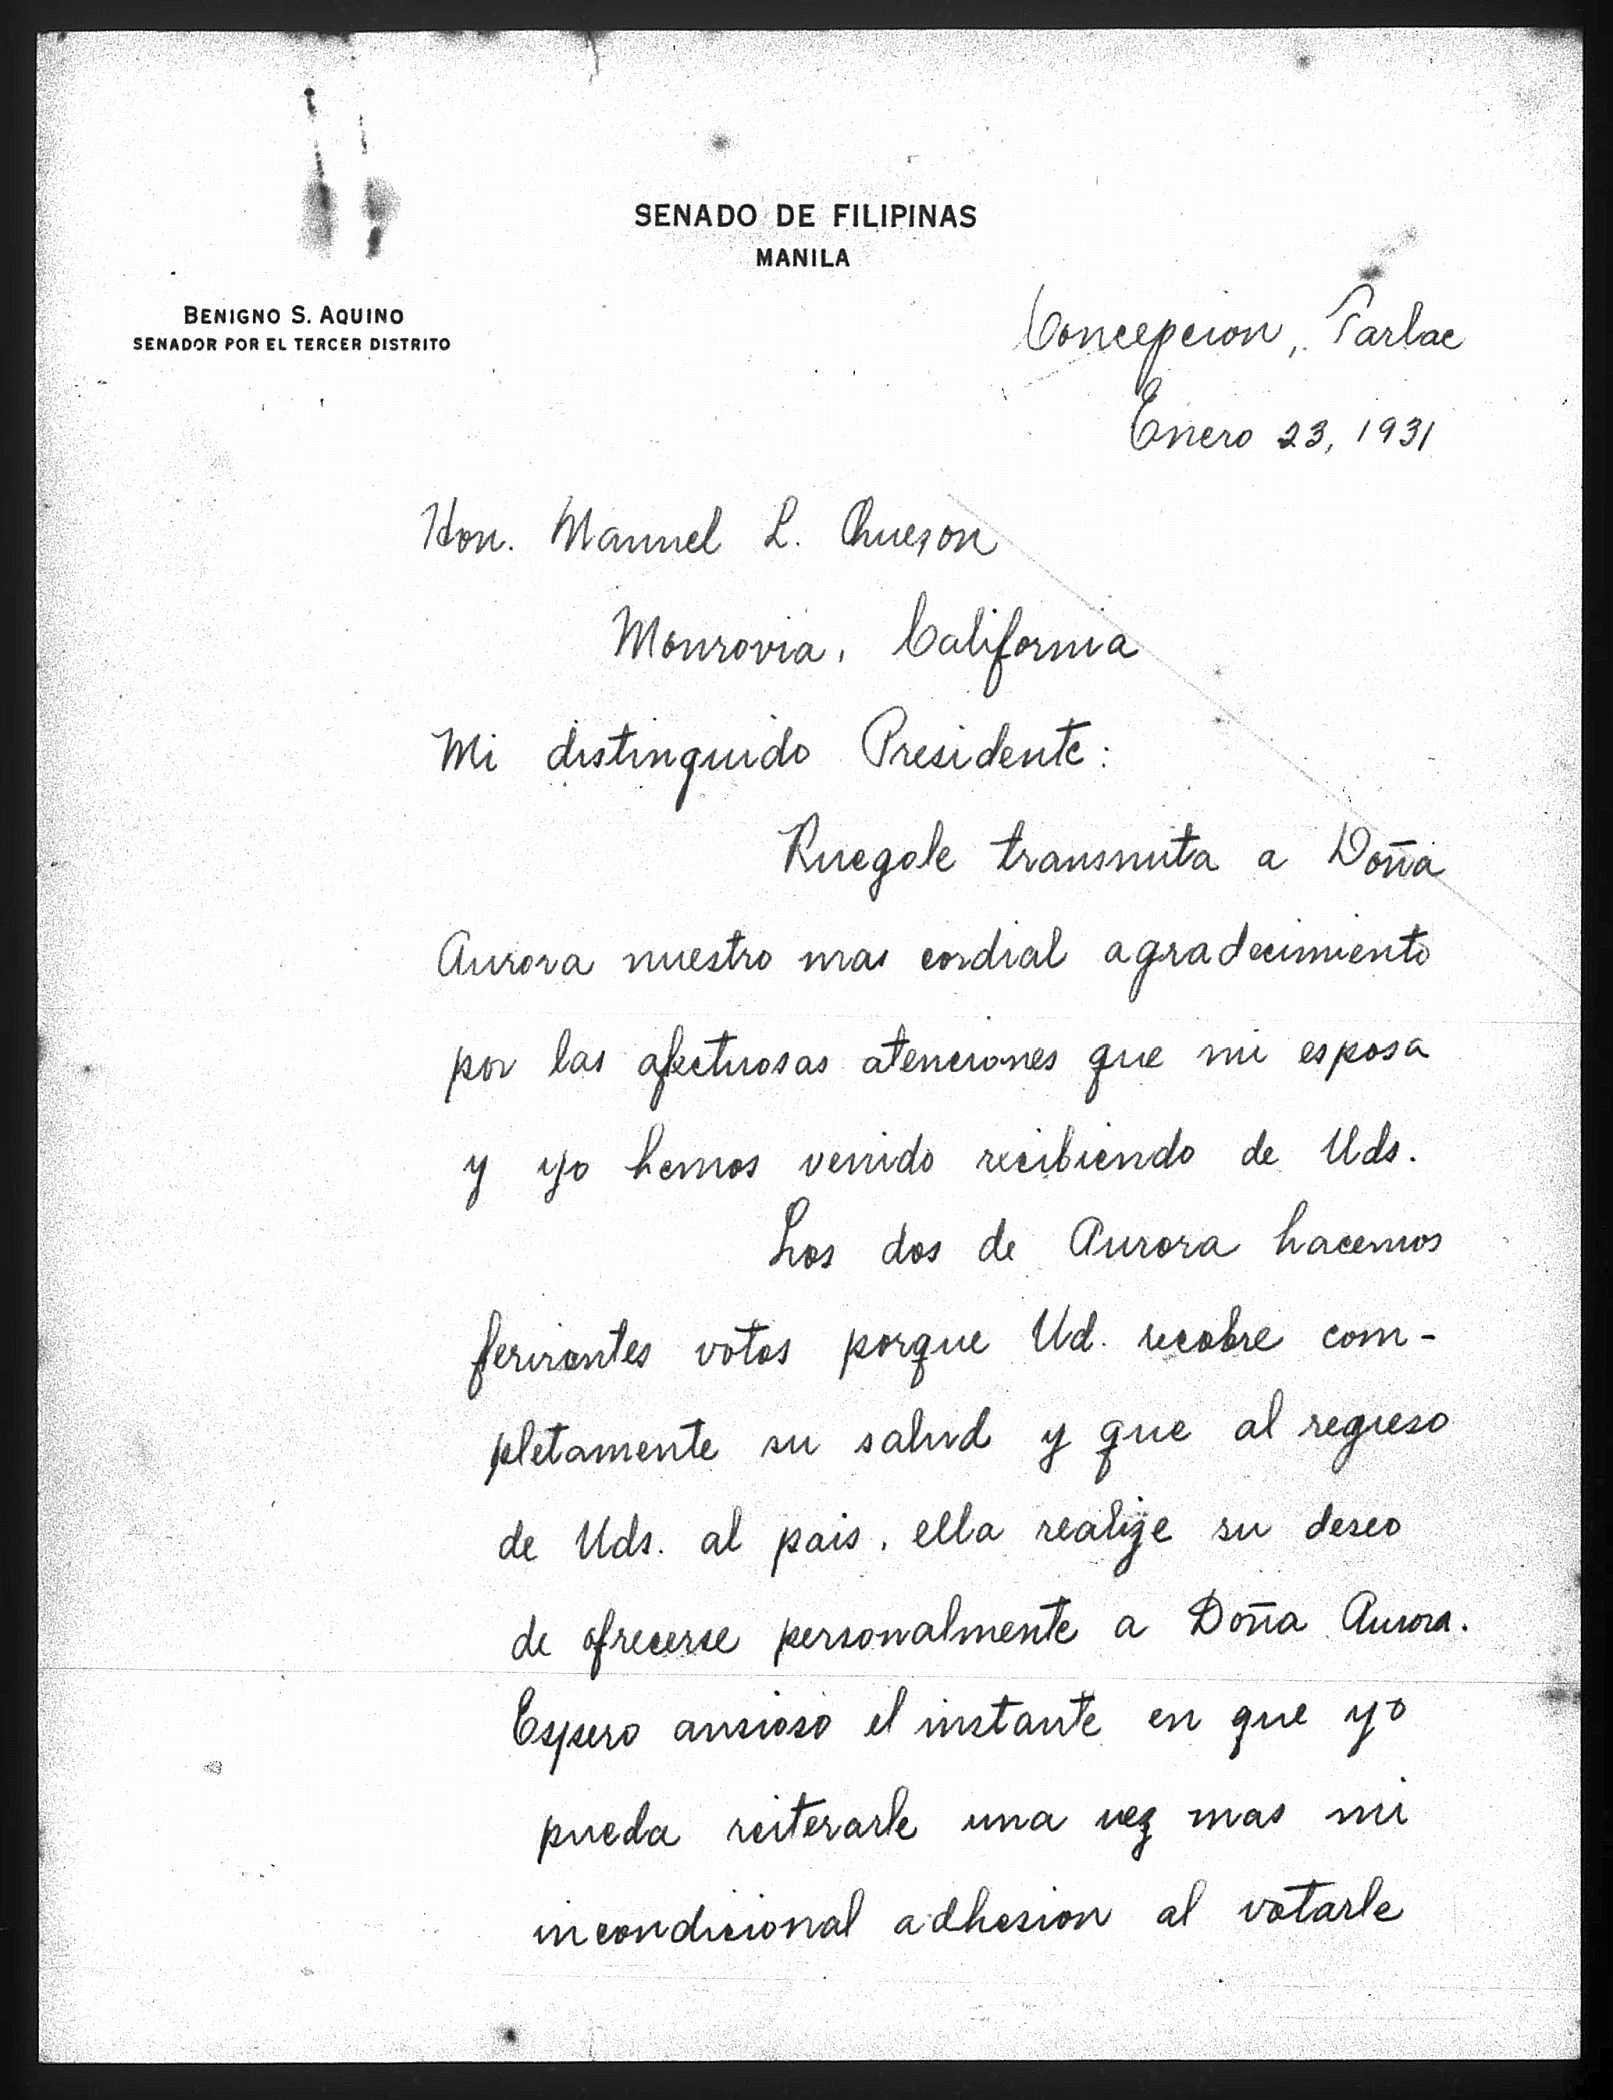 SENADO DE FILIPINAS
MANILA
BENIGNO S. AQUINO
SENADOR POR EL TERCER DISTRITO
Concepcion, Tarlac
Enero 23, 1931
Hon. Manuel L. Quezon
Monrovia, California
Mi distinguido Presidente:
Ruegole transmita a Doña
Aurora nuestro mas cordial agradecimiento
por las afectuosas atenciones que mi esposa
y yo hemos venido recibiendo de Uds.
Los dos de Aurora hacemos
fervientes votos porque Ud. recobre com-
pletamente su salud y que al regreso
de Uds. al pais, ella realize su deseo
de ofrecerse personalmente a Doña Aurora.
Espero ansioso el instante en que yo
pueda reiterarle una vez mas mi
incondicional adhesion al votarle